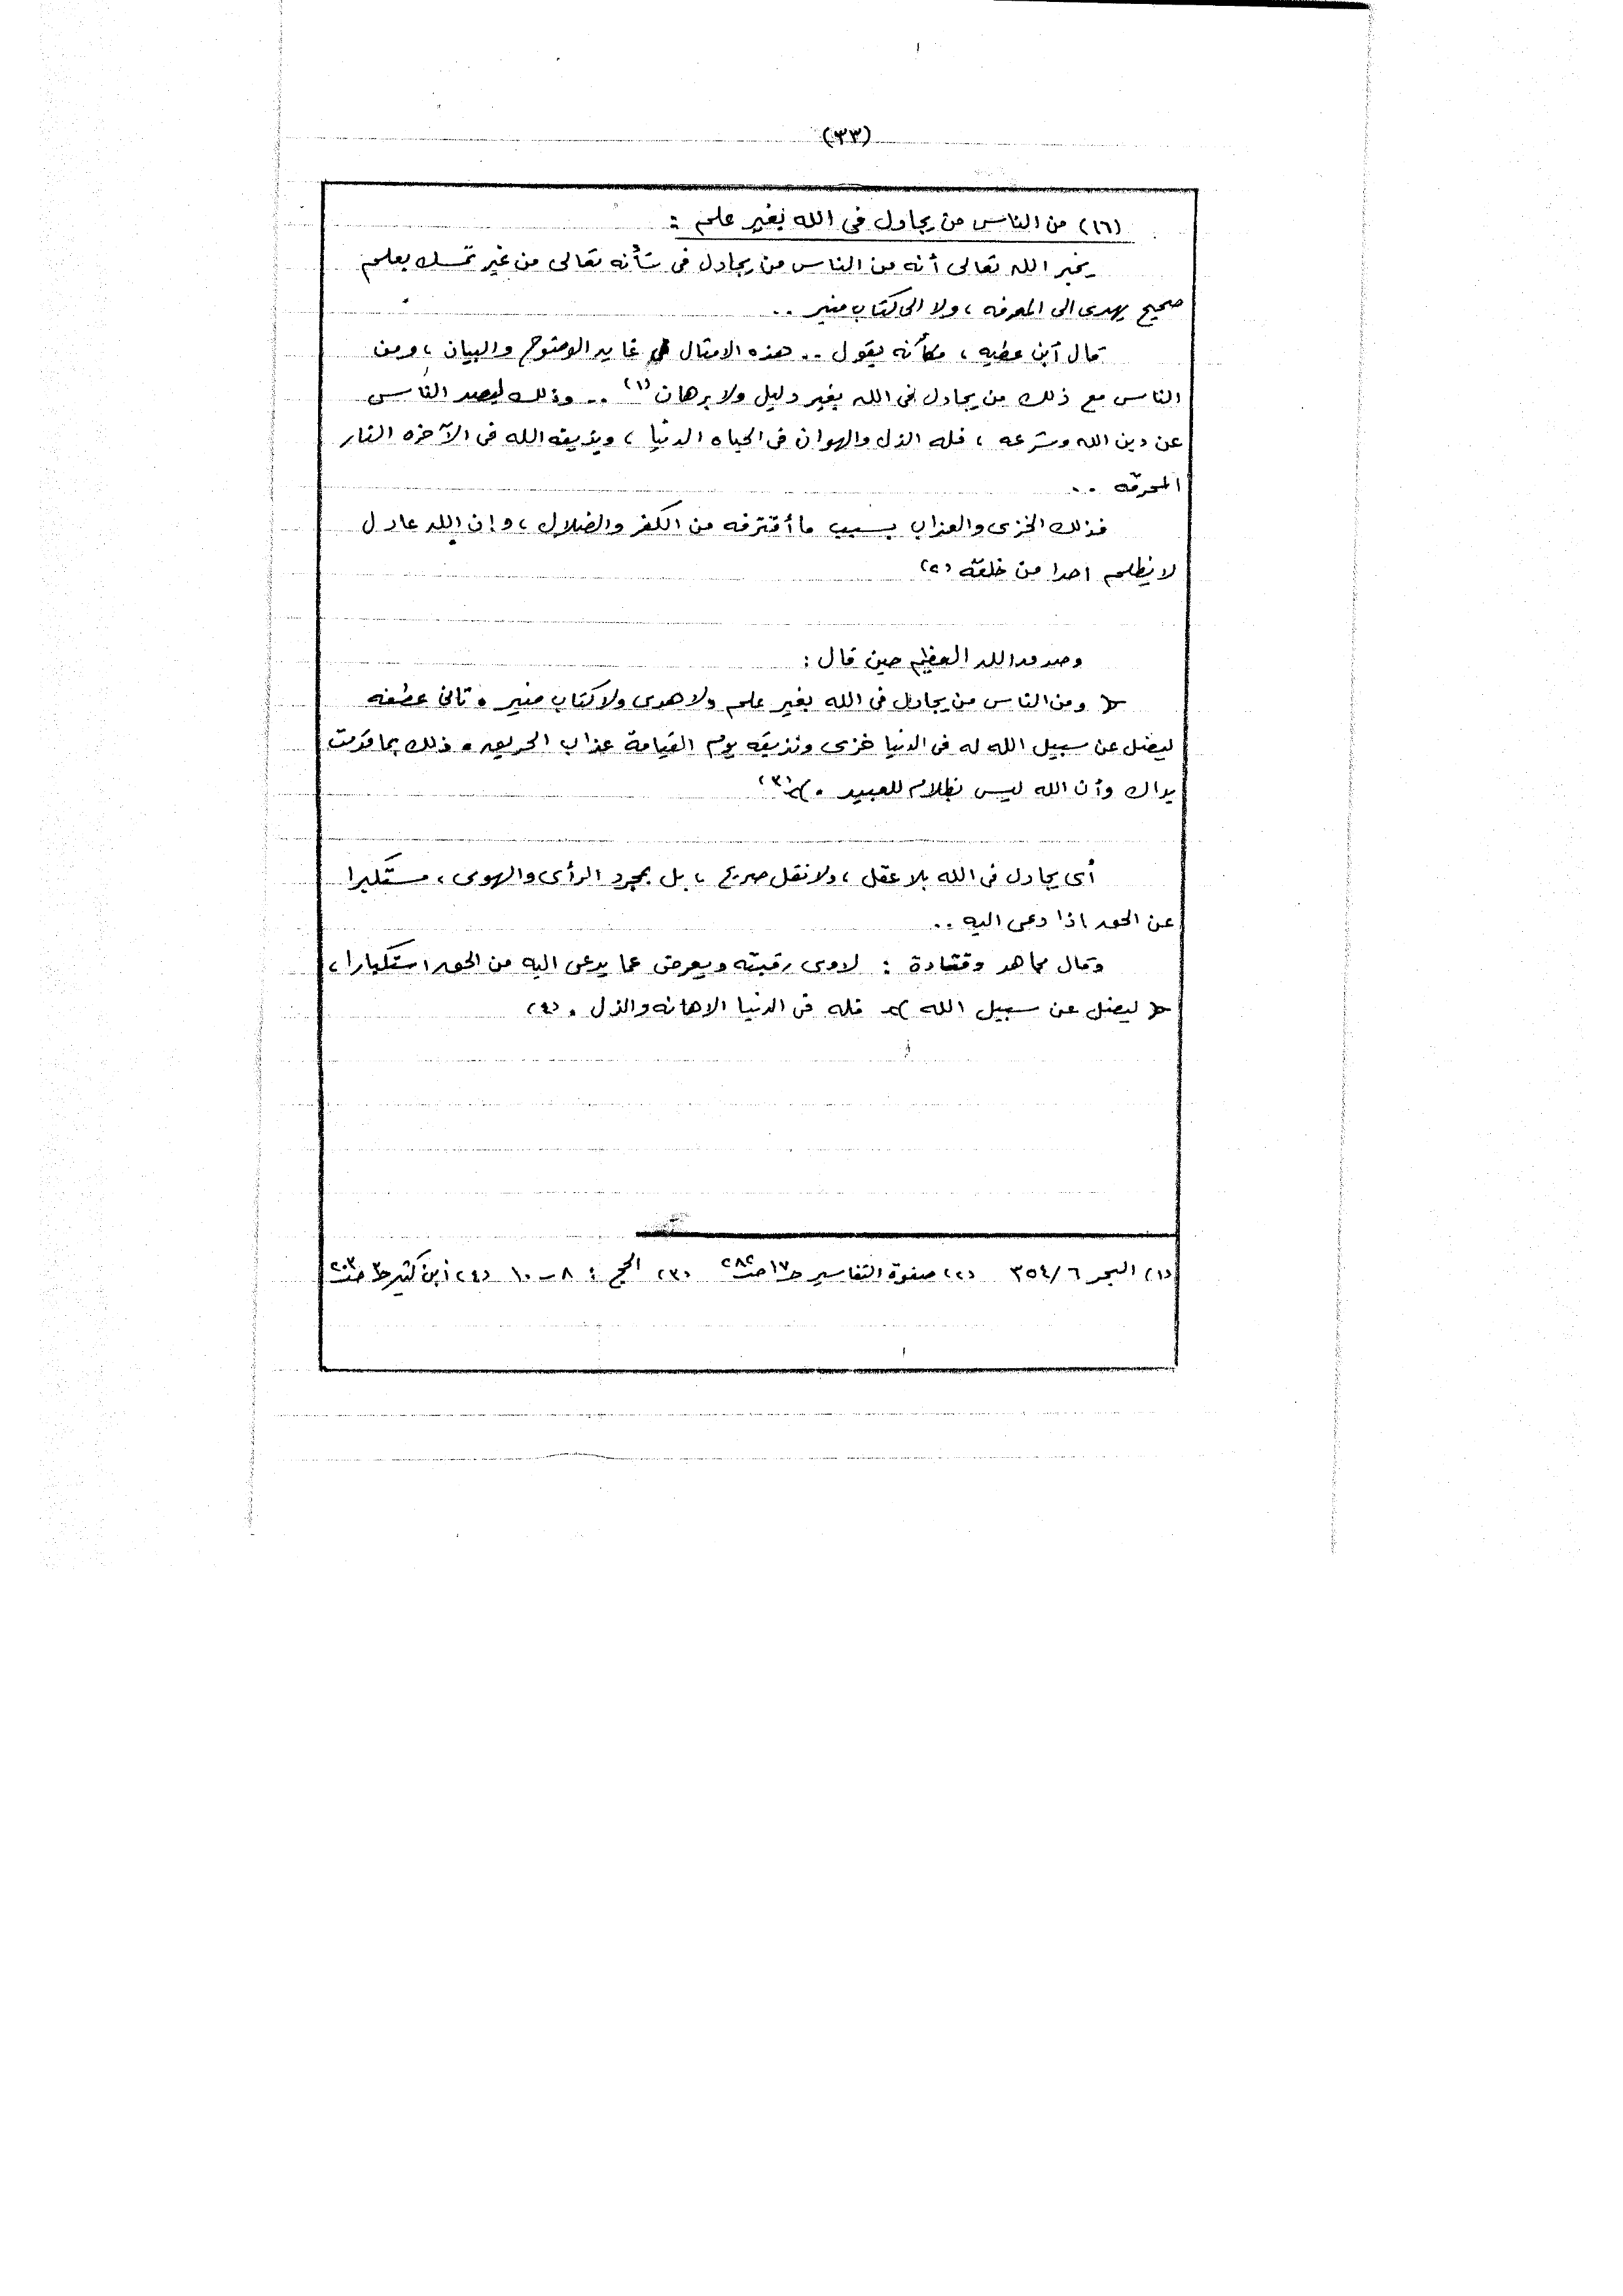 (٣٣)
(١٦) من الناس من يجادل فى الله بغير علم :
يخبر الله تعالى أنه من الناس من يجادل فى شأنه تعالى من غير تمسك بعلم
صحيح يهدى الى المعرفه ، ولا الى كتاب منير ..
قال أبن عطيه ، وكأنه يقول .. هذه الامثال فى غايه الوضوح والبيان ، ومن
الناس مع ذلك من يجادل فى الله بغير دليل ولا برهان (١) .. وذلك ليصد الناس
عن دين الله وشرعه ، فله الذل والهوان فى الحياه الدنيا ، ويذيقه الله فى الآخره النار
المحرقه ..
فذلك الخزى والعذاب بسبب ما أقترفه من الكفر والضلال ، وإن الله عادل
لا يظلم احدا من خلقه (٢)
وصدق الله العظيم حين قال :
﴿ ومن الناس من يجادل فى الله بغير علم ولا هدى ولا كتاب منير . ثانى عطفه
ليضل عن سبيل الله له فى الدنيا خزى ونذيقه يوم القيامة عذاب الحريق . ذلك بما قدمت
يداك وأن الله ليس بظلام للعبيد . ﴾ (٣)
أى يجادل فى الله بلا عقل ، ولا نقل صريح ، بل بمجرد الرأى والهوى ، مستكبرا
عن الحق اذا دعى اليه ..
وقال مجاهد وقتادة : لاوى رقبته ويعرض عما يدعى اليه من الحق استكبارا ،
﴿ ليضل عن سبيل الله ﴾ فله فى الدنيا الاهانه والذل . (٤)
(١) البحر ٦/٣٥٤ (٢) صفوة التفاسير ح١٧ صـ٢٨٢ (٣) الحج : ٨ - ١٠ (٤) أبن كثير ح٣ صـ٢٠٣